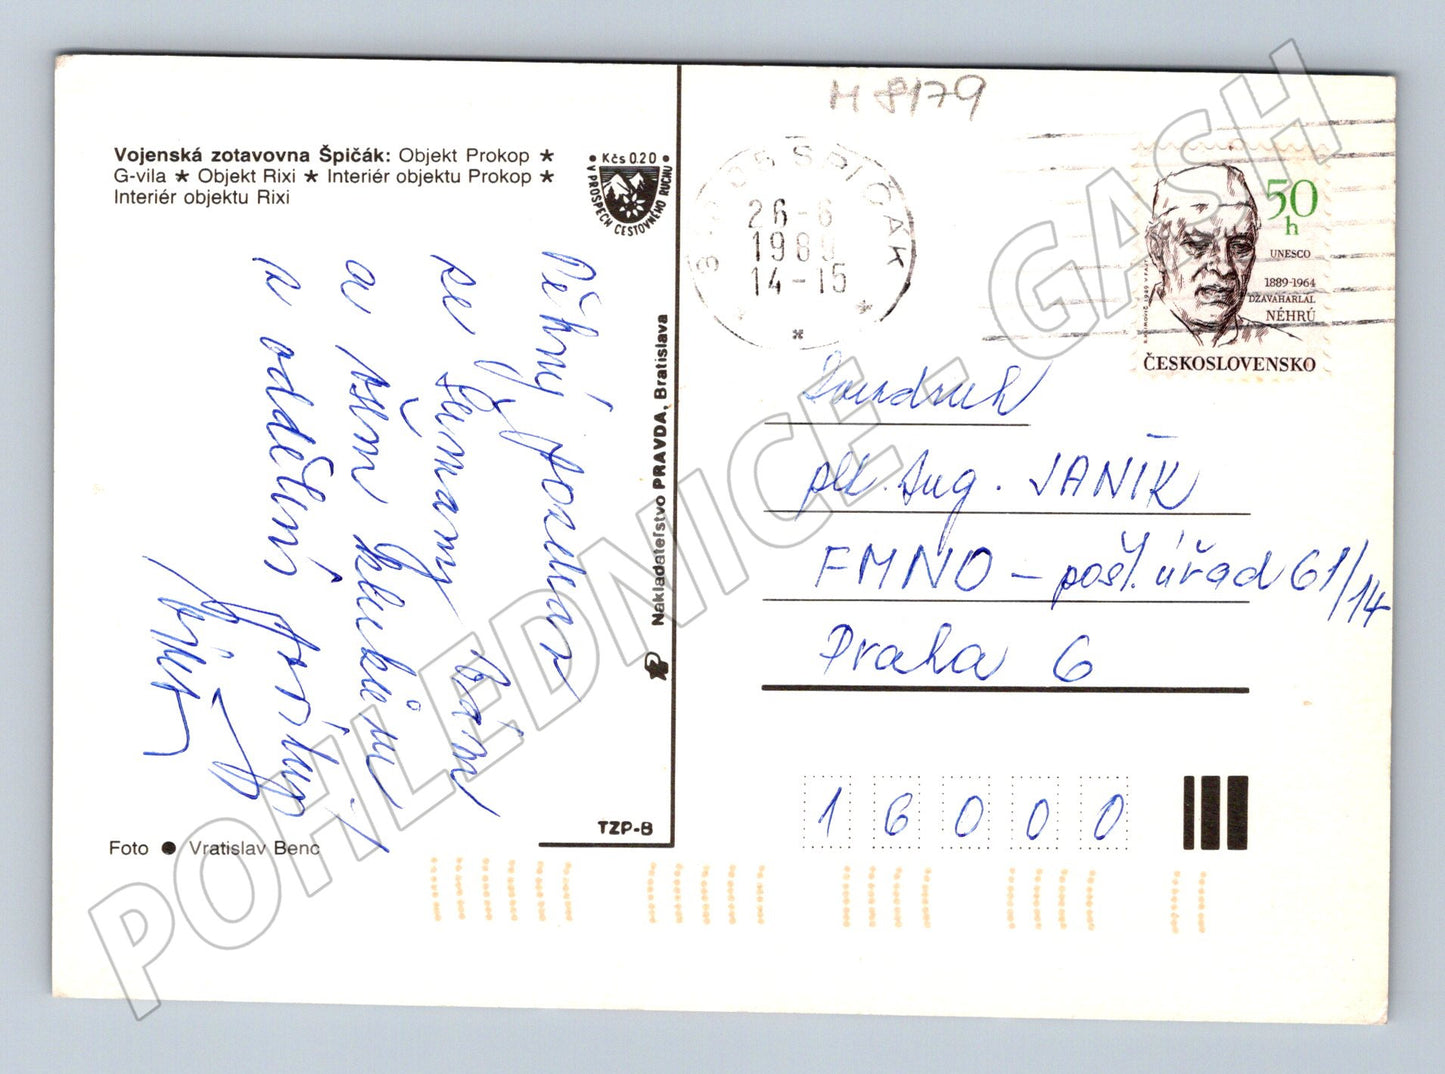 Vojenská zotavovna Špičák: Objekt Prokop ★
G-vila ★ Objekt Rixi ★ Interiér objektu Prokop ★
Interiér objektu Rixi
• Kčs 0.20 •
V PROSPECH CESTOVNÉHO RUCHU
Pěkný pozdrav
ze Šumavy Vám
a všem klukům
z oddělení
Foto ● Vratislav Benc
Nakladateľstvo PRAVDA, Bratislava
TZP-B
M 8179
ŠPIČÁK
26-6
1989
14-15
50
h
UNESCO
1889-1964
DŽAVAHARLAL
NÉHRÚ
ČESKOSLOVENSKO
Soudruh
plk. Ing. JANÍK
FMNO – pošt. úřad 61/14
Praha 6
16000
POHLEDNICE - GASH